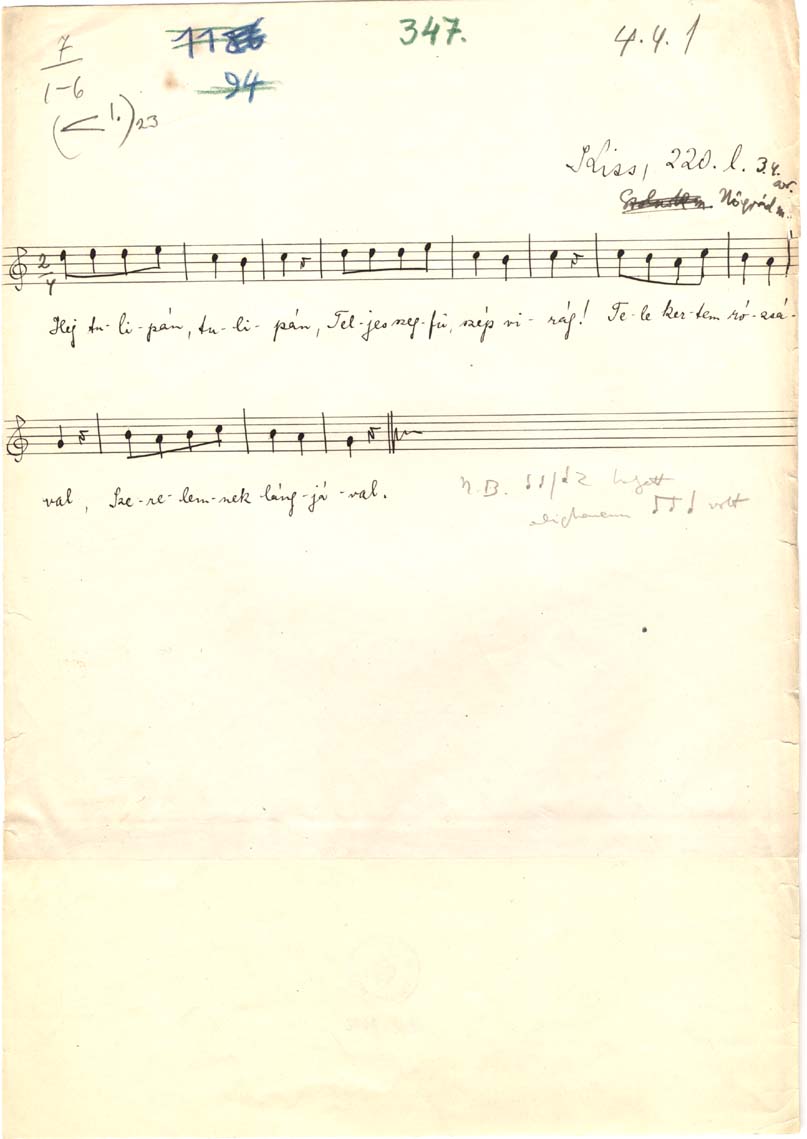 7 1186 347. 4.4.1
1-6 94
(< 1.) 23
Kiss, 220. l. 34.
Nógrád m.
2/4
Hej tu-li-pán, tu-li-pán, Tel-jes szeg-fü, szép vi-rág! Te-le ker-tem ró-zsá-
val, Sze-re-lem-nek láng-já-val.
N.B. helyett
alighanem volt